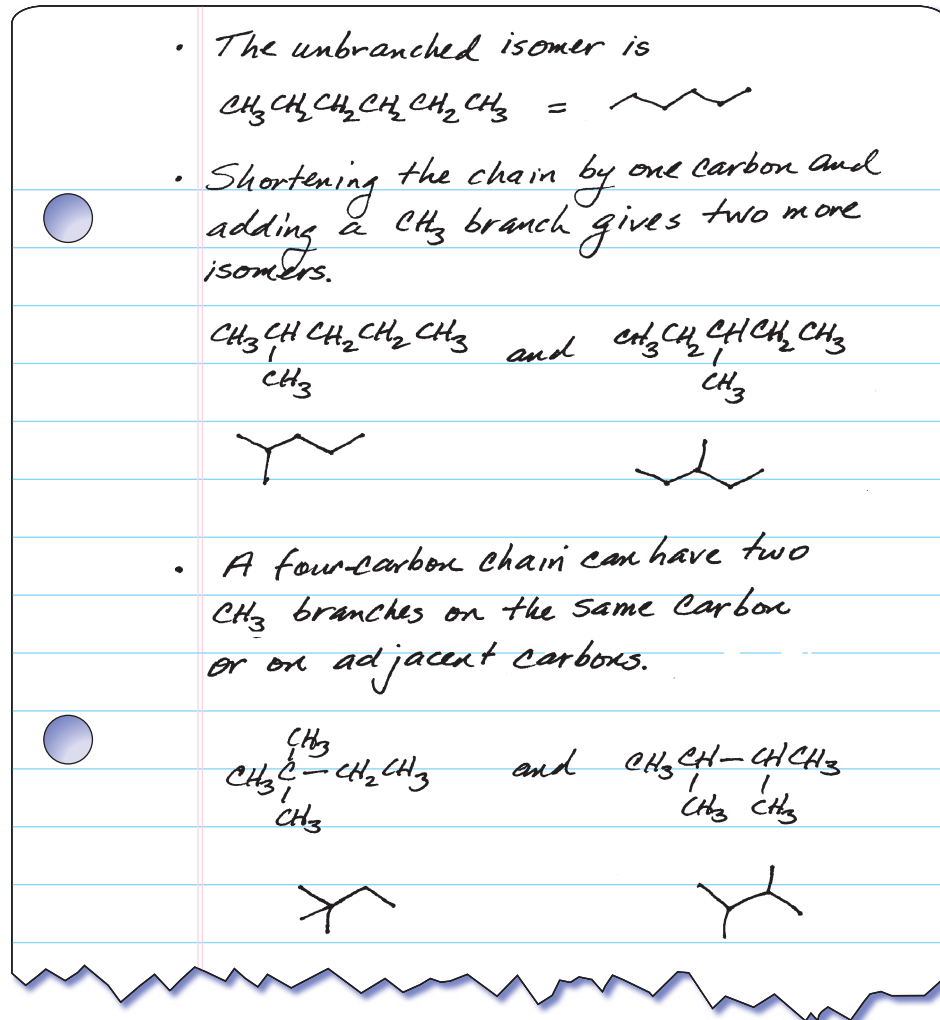 • The unbranched isomer is
CH₃CH₂CH₂CH₂CH₂CH₃ =
• Shortening the chain by one carbon and
adding a CH₃ branch gives two more
isomers.
CH₃CHCH₂CH₂CH₃ and CH₃CH₂CHCH₂CH₃
CH₃ CH₃
• A four-carbon chain can have two
CH₃ branches on the same carbon
or on adjacent carbons.
CH₃
CH₃C–CH₂CH₃ and CH₃CH–CHCH₃
CH₃ CH₃ CH₃